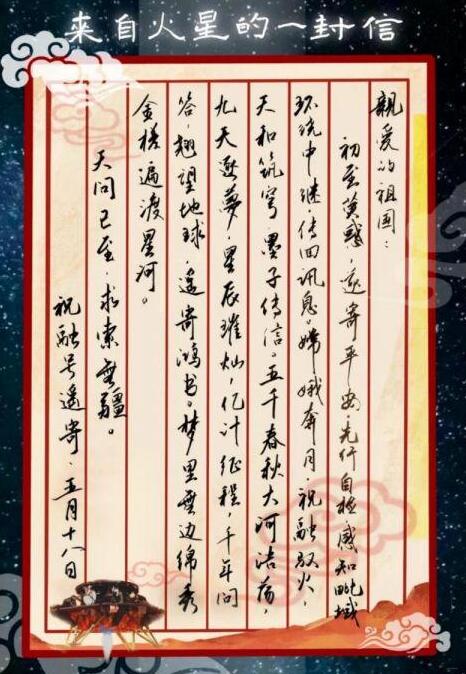 來自火星的一封信
親爱的祖国：
初至荧惑，遥寄平安。先行自检感知毗域
环绕中继，传回讯息。嫦娥奔月，祝融驭火，
天和筑穹，墨子传信。五千春秋大河浩荡，
九天逐夢，星辰璀灿，亿计征程，千年问
答，翘望地球，遥寄鸿书。梦里無边绵秀
金槎遍渡星河。
天问已至，求索無疆。
祝融号遥寄，五月十八日